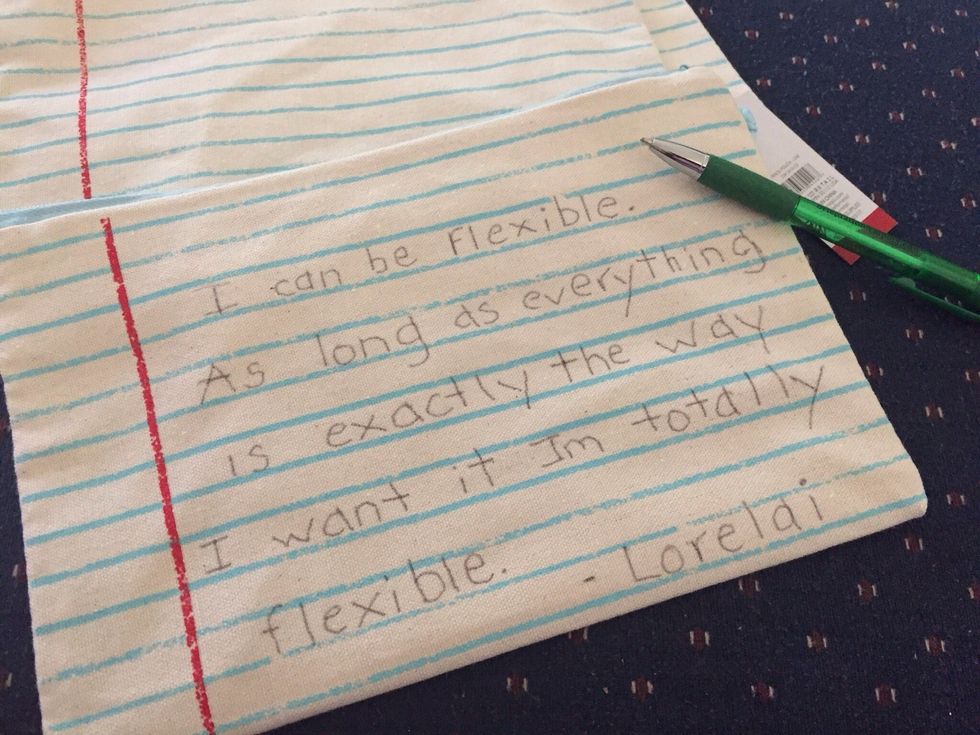 I can be flexible.
As long as everything
is exactly the way
I want it Im totally
flexible. - Loreldi